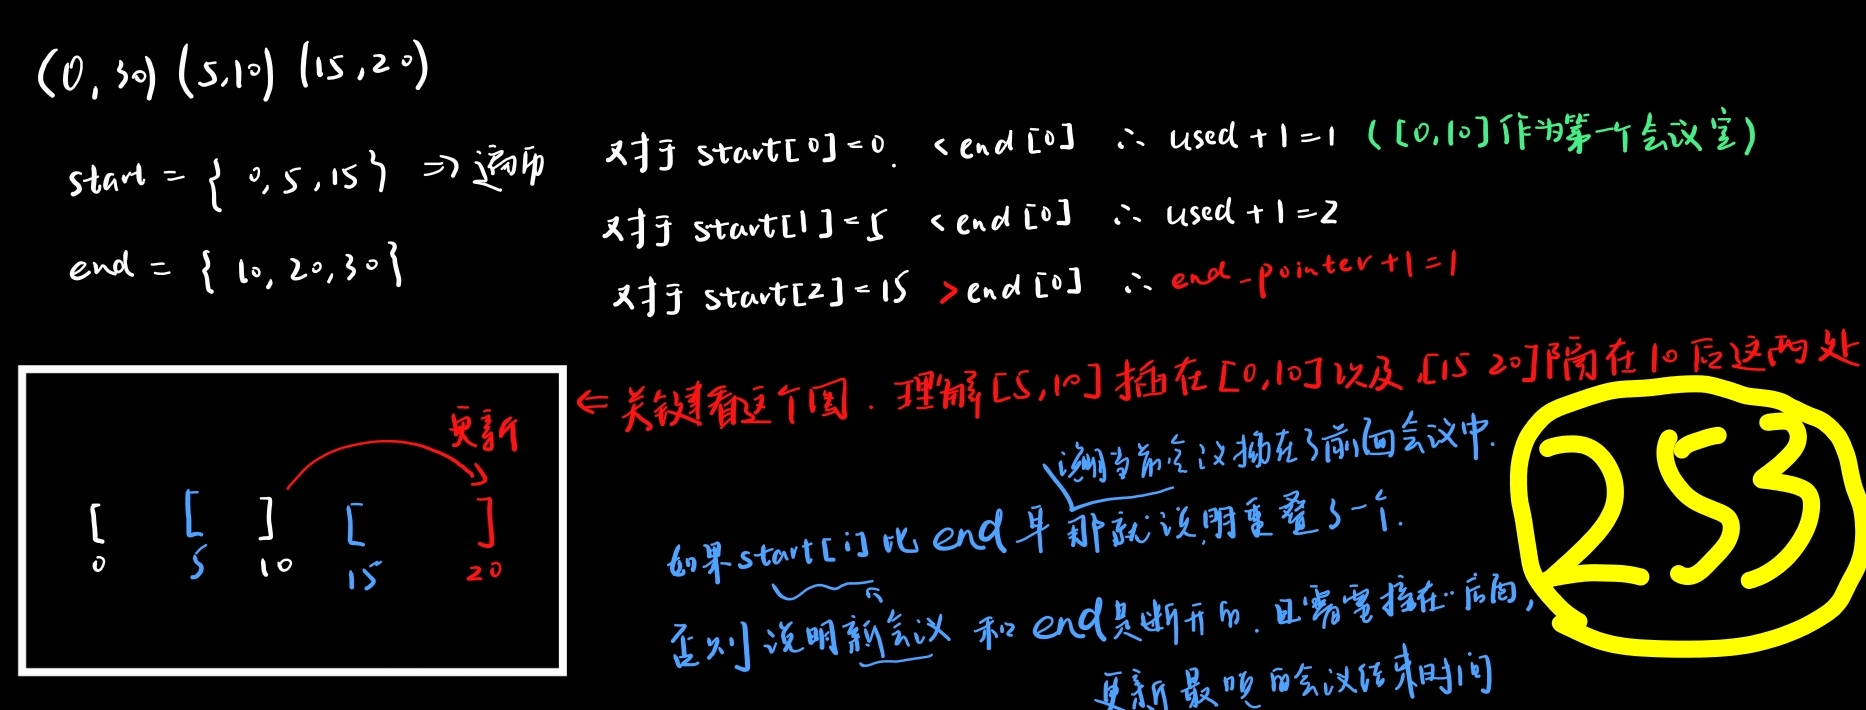 (0,30) (5,10) (15,20)
start = { 0,5,15 } => 遍历
end = { 10,20,30 }
对于 start[0]=0. < end[0] ∴ used+1=1 ([0,10]作为第一个会议室)
对于 start[1]=5 < end[0] ∴ used+1=2
对于 start[2]=15 > end[0] ∴ end-pointer+1=1
← 关键看这个图. 理解[5,10]插在[0,10]以及[15 20]隔在10后这两处
253
说明当前会议插在了前面会议中.
如果start[i]比end早 那就说明重叠了一个.
否则说明新会议 和end是断开的. 且需要接在..后面,
更新最晚的会议结束时间
更新
[ [ ] [ ]
0 5 10 15 20